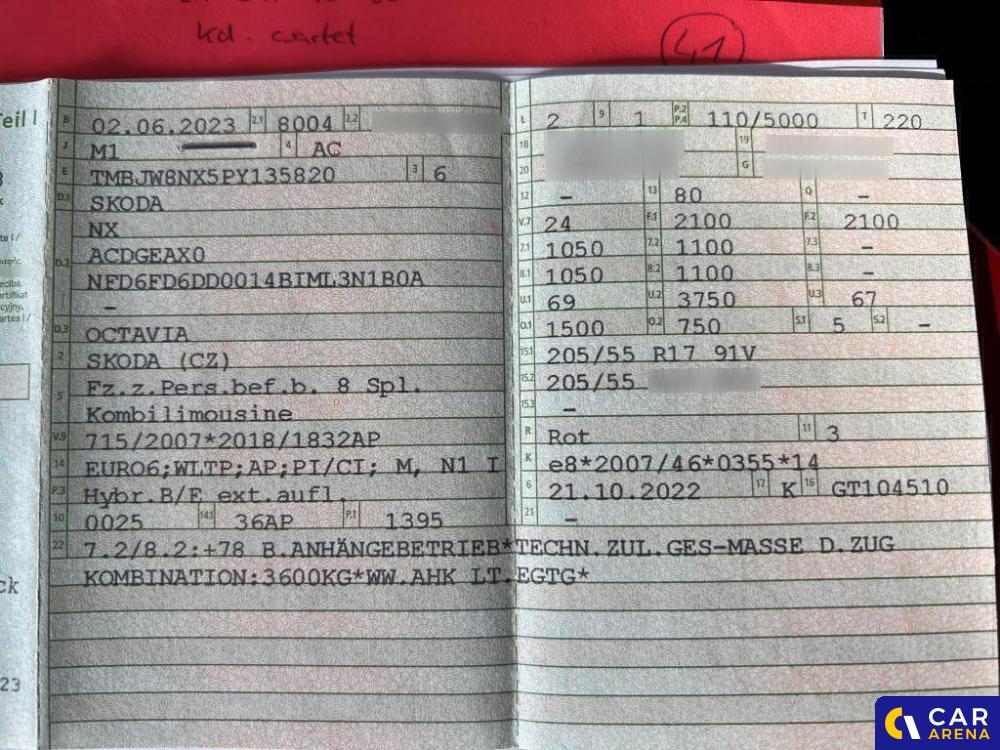 kd. cartet
41
Teil I
B 02.06.2023 2.1 8004 2.2
J M1 4 AC
E TMBJW8NX5PY135820 3 6
D.1 SKODA
NX
D.2 ACDGEAX0
NFD6FD6DD0014BIML3N1B0A
–
D.3 OCTAVIA
2 SKODA (CZ)
5 Fz.z.Pers.bef.b. 8 Spl.
Kombilimousine
V.9 715/2007*2018/1832AP
14 EURO6;WLTP;AP;PI/CI; M, N1 I
P.3 Hybr.B/E ext.aufl.
10 0025 14.1 36AP P.1 1395
L 2 9 1 P.2 P.4 110/5000 T 220
18 19
20 G
12 – 13 80 Q –
V.7 24 F.1 2100 F.2 2100
7.1 1050 7.2 1100 7.3 –
8.1 1050 8.2 1100 8.3 –
U.1 69 U.2 3750 U.3 67
O.1 1500 O.2 750 S.1 5 S.2 –
15.1 205/55 R17 91V
15.2 205/55
15.3 –
R Rot 11 3
K e8*2007/46*0355*14
6 21.10.2022 17 K 16 GT104510
21 –
22 7.2/8.2:+78 B.ANHÄNGEBETRIEB*TECHN.ZUL.GES-MASSE D.ZUG
KOMBINATION:3600KG*WW.AHK LT.EGTG*
ck
23
CAR
ARENA